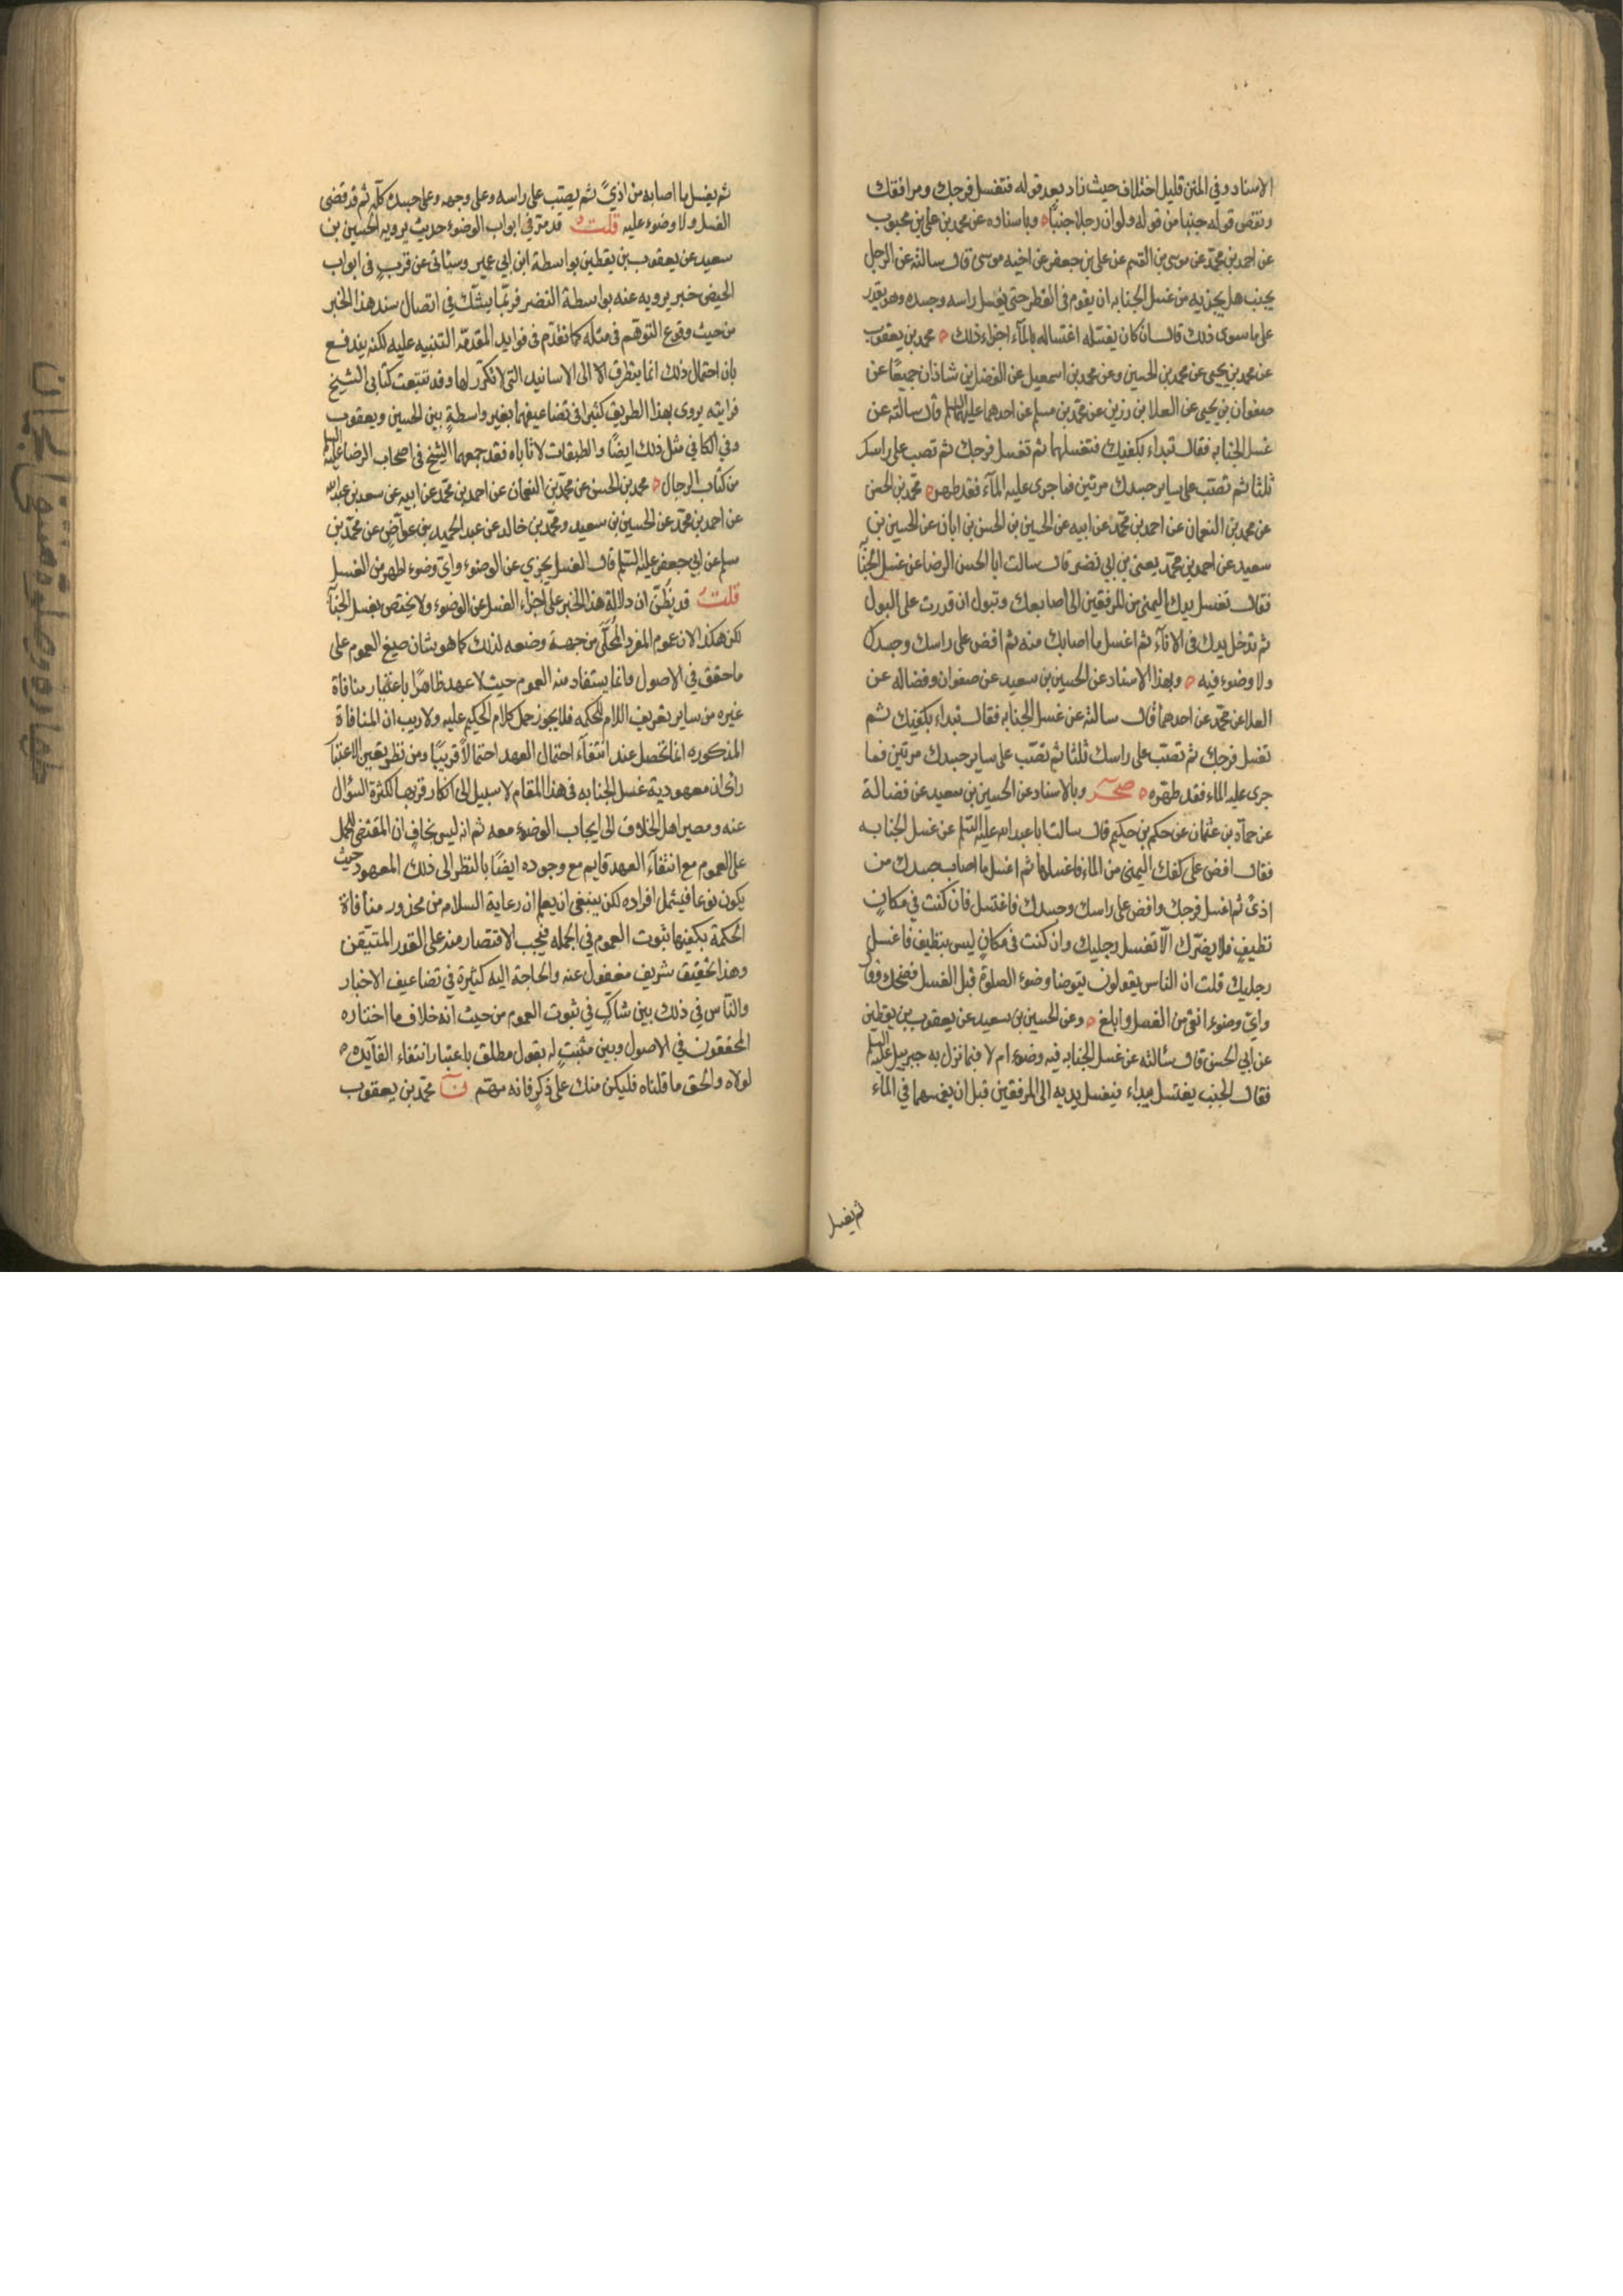 الاسناد وفي المتن قليل اختلاف حيث زاد بعد قوله فتغسل فرجك ومرافقك
ونقص قوله جنبا من قوله ولو ان رجلا جنبا ه وباسناده عن محمد بن علي بن محبوب
عن احمد بن محمد عن موسى بن القسم عن علي بن جعفر عن اخيه موسى قال سالته عن الرجل
يجنب هل يجزيه من غسل الجنابه ان يقوم في القطر حتى يغسل راسه وجسده وهو يقدر
على ما سوى ذلك قال ان كان يغسله اغتساله بالمآء اجزاه ذلك ه محمد بن يعقوب
عن محمد بن يحيى عن محمد بن الحسين وعن محمد بن اسمعيل عن الفضل بن شاذان جميعا عن
صفوان بن يحيى عن العلا بن رزين عن محمد بن مسلم عن احدهما عليهما السلم قال سالته عن
غسل الجنابه فقال تبداء بكفيك فتغسلهما ثم تغسل فرجك ثم تصب على راسك
ثلثا ثم تصبّ على ساير جسدك مرتين فما جرى عليه المآء فقد طهر ه محمد بن الحسن
عن محمد بن النعمان عن احمد بن محمد عن ابيه عن الحسين بن الحسن بن ابان عن الحسين بن
سعيد عن احمد بن محمد يعني بن ابي نصر قال سالت ابا الحسن الرضا عن غسل الجنابة
فقال تغسل يدك اليمنى من المرفقين الى اصابعك وتبول ان قدرت على البول
ثم تدخل يدك في الاناء ثم اغسل ما اصابك منه ثم افض على راسك وجسدك
ولا وضوء فيه ه وبهذا الاسناد عن الحسين بن سعيد عن صفوان وفضاله عن
العلا عن محمد عن احدهما قال سالته عن غسل الجنابه فقال تبداء بكفيك ثم
تغسل فرجك ثم تصبّ على راسك ثلثا ثم تصبّ على ساير جسدك مرتين فما
جرى عليه الماء فقد طهره ه صحر وبالاسناد عن الحسين بن سعيد عن فضالة
عن حماد بن عثمان عن حكم بن حكيم قال سالت ابا عبد الله عليه السلم عن غسل الجنابه
فقال افض على كفك اليمنى من الماء فاغسلها ثم اغسل ما اصاب جسدك من
اذى ثم اغسل فرجك وافض على راسك وجسدك فاغتسل فان كنت في مكانٍ
نظيفٍ فلا يضرّك الّا تغسل رجليك وان كنت في مكانٍ ليس بنظيف فاغسل
رجليك قلت ان الناس يقولون يتوضا وضوء الصلوة قبل الغسل فضحك وقال
وايّ وضوء انقى من الغسل وابلغ ه وعن الحسين بن سعيد عن يعقوب بن يقطين
عن ابي الحسن قال سئالته عن غسل الجنابه فيه وضوء ام لا فيما نزل به جبرييل عليه السلم
فقال الجنب يغتسل يبداء فيغسل يديه الى المرفقين قبل ان يغمسهما في الماء
ثم يغسل
ثم يغسل ما اصابه من اذيً ثم يصبّ على راسه وعلى وجهه وعلى جسده كلّه ثم قد قضى
الغسل ولا وضوء عليه قلت ه قد مرّ في ابواب الوضوء حديث يرويه الحسين بن
سعيد عن يعقوب بن يقطين بواسطة ابن ابي عمير وسيئاتى عن قربٍ في ابواب
الحيض خبر يرويه عنه بواسطة النضر فربّما يشكّ في اتصال سند هذا الخبر
من حيث وقوع التوهّم في مثله كما تقدّم في فوايد المقدّمه التنبيه عليه لكنه يندفع
بان احتمال ذلك انما يتطرق الا الى الاسانيد التي لا تكرّر لها وقد تتبعت كتابى الشيخ
فرايته يروى بهذا الطريق كثيرا في تضاعيفهما بغير واسطةٍ بين الحسين ويعقوب
وفي الكافي مثل ذلك ايضًا والطبقات لا تاباه فقد جمعهما الشيخ في اصحاب الرضا عليه السلم
من كتاب الرجال ه محمد بن الحسن عن محمّد بن النعمان عن احمد بن محمّد عن ابيه عن سعد بن عبد الله
عن احمد بن محمّد عن الحسين بن سعيد ومحمّد بن خالد عن عبد الحميد بن عواضٍ عن محمّد بن
مسلم عن ابي جعفر عليه السّلم قال الغسل يجزي عن الوضوء وايّ وضوء اطهر من الغسل
قلت قد يظنّ ان دلالة هذا الخبر على اجزاء الغسل عن الوضوء ولا يختص بغسل الجنابة
لكن هكذا لان عموم المفرد المحلّى من جهة وضعه لذلك كما هو شان صيغ العموم على
ما حقق في الاصول وانما يستفاد منه العموم حيث لا عهد ظاهرًا باعتبار منافاة
غيره من ساير تعريف اللام للحكمه فلا يجوز حمل كلام الحكيم عليه ولا ريب ان المنافاة
المذكوره انما تحصل عند انتفآء احتمال العهد احتمالاً قريبًا ومن نظر بعين الاعتبار
رأى ان معهودية غسل الجنابه في هذا المقام لا سبيل الى انكار قربها لكثرة السؤال
عنه ومصير اهل الخلاف الى ايجاب الوضوء معه ثم انه ليس بخافٍ ان المقتضى للحمل
على العموم مع انتفآء العهد قايم مع وجوده ايضًا بالنظر الى ذلك المعهود حيث
يكون نوعا فيشمل افراده لكن ينبغي ان يعلم ان رعاية السلام من محذور منافاة
الحكمة يكفيها ثبوت العموم في الجمله فيجب الاقتصار منه على القدر المتيّقن
وهذا تحقيق شريف مغفول عنه والحاجة اليه كثيرة في تضاعيف الاخبار
والنّاس في ذلك بين شاكٍ في ثبوت العموم من حيث انه خلاف ما اختاره
المحققون في الاصول وبين مثبتٍ له بقول مطلق باعتبار انتفاء الفآيده
لولاه والحق ما قلناه فليكن منك على ذكرٍ فانه مهّم ن محمّد بن يعقوب